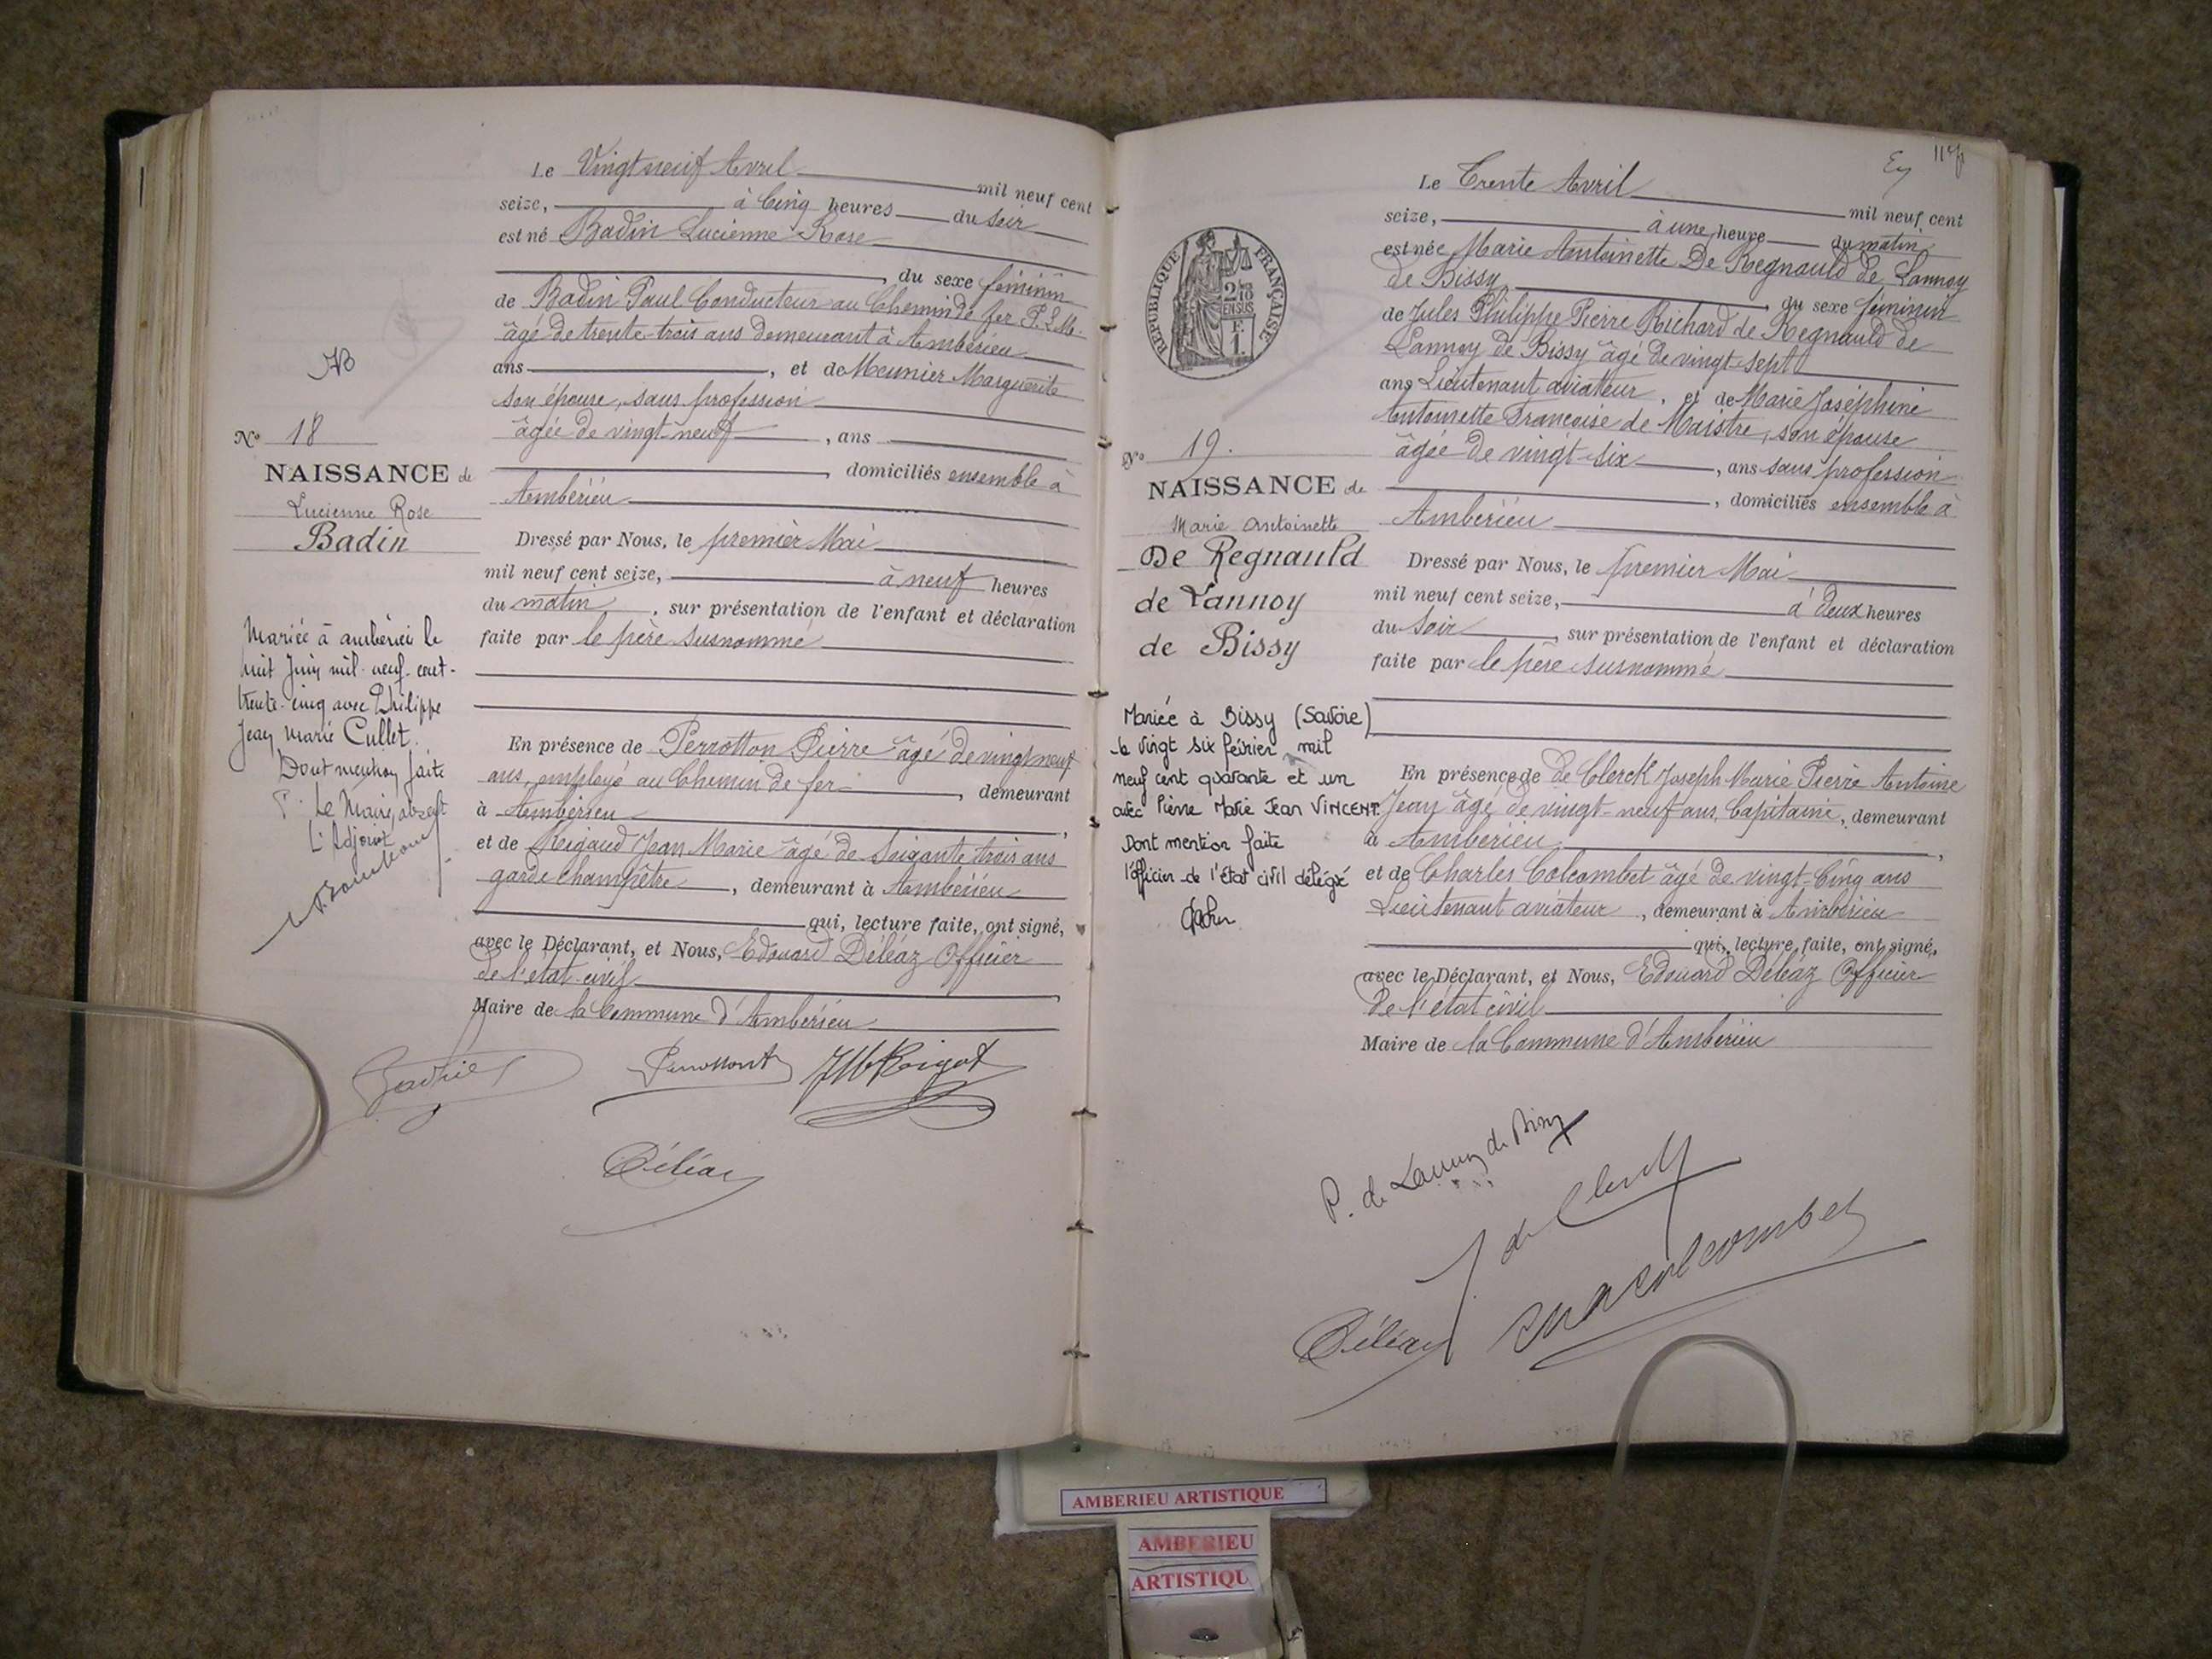 Le Vingt neuf Avril mil neuf cent
seize, à Cinq heures du Soir
est né Badin Lucienne Rose
du sexe féminin
de Badin Paul Conducteur au Chemin de fer P.L.M.
âgé de trente-trois ans demeurant à Ambérieu
ans , et de Meunier Marguerite
son épouse, sans profession
âgée de vingt-neuf , ans
, domiciliés ensemble à
Ambérieu
Dressé par Nous, le premier Mai
mil neuf cent seize, à neuf heures
du matin , sur présentation de l'enfant et déclaration
faite par le père susnommé
En présence de Perrotton Pierre âgé de vingt neuf
ans, employé au Chemin de fer , demeurant
à Ambérieu ,
et de Reigaud Jean Marie âgé de Soixante trois ans
garde Champêtre , demeurant à Ambérieu
qui, lecture faite, ont signé,
avec le Déclarant, et Nous, Edouard Déléaz Officier
de l'état-civil ,
Maire de la Commune d'Ambérieu
JM Rigot
Déléaz
N° 18
NAISSANCE de
Lucienne Rose
Badin
Mariée à Ambérieu le
huit Juin mil-neuf-cent-
trente-cinq avec Philippe
Jean Marie Cullet.
Dont mention faite
P. Le Maire, absent
L'Adjoint
117
Le Trente Avril mil neuf cent
seize, à une heure du matin
est née Marie Antoinette De Regnauld de Lannoy
de Bissy du sexe féminin
de Jules Philippe Pierre Richard de Regnauld de
Lannoy de Bissy âgé de vingt-sept
ans Lieutenant aviateur , et de Marie Joséphine
Antoinette Françoise de Maistre, son épouse
âgée de vingt-six , ans sans profession
, domiciliés ensemble à
Ambérieu
Dressé par Nous, le premier Mai
mil neuf cent seize, à deux heures
du Soir , sur présentation de l'enfant et déclaration
faite par le père susnommé
En présence de de Clerck Joseph Marie Pierre Antoine
Jean âgé de vingt-neuf ans, Capitaine, demeurant
à Ambérieu ,
et de Charles Colcombet âgé de vingt-Cinq ans
Lieutenant aviateur , demeurant à Ambérieu
qui, lecture faite, ont signé,
avec le Déclarant, et Nous, Edouard Déléaz Officier
de l'état civil
Maire de la Commune d'Ambérieu
P. de Lannoy de Bissy
J de Clerck
Déléaz
RÉPUBLIQUE FRANÇAISE
2/10
EN SUS
F.
1.
N° 19.
NAISSANCE de
Marie Antoinette
De Regnauld
de Lannoy
de Bissy
Mariée à Bissy (Savoie)
le vingt six février mil
neuf cent quarante et un
avec Pierre Marie Jean VINCENT.
Dont mention faite
l'officier de l'état civil délégué
AMBERIEU ARTISTIQUE
AMBERIEU
ARTISTIQU